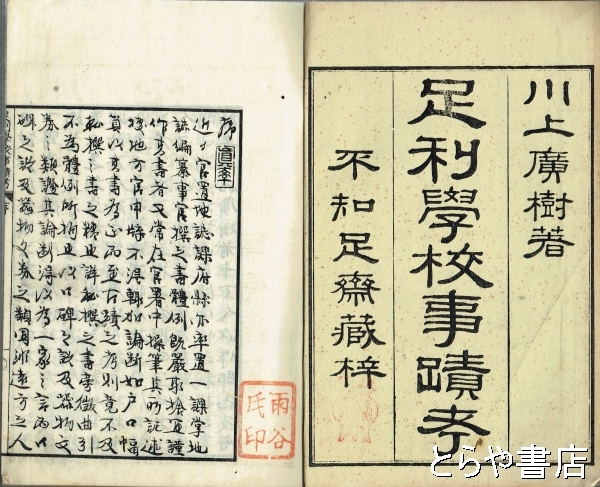 川上廣樹著
足利學校事蹟考
不知足齋藏梓
序
近日官置地誌課府縣亦率置一課掌地
誌編纂事官撰之書體例既嚴取捨宜謹
作者又常在官署中操筆其所記述
地方官申
真以其書為正而至古蹟之考則竟不及
私撰之書之精且詳私撰之書旁徵曲引
不為體例所拘且以口碑之說及器物文
券之類證其論斷得以為一家之言而口
碑之說及器物文券之類固非遠方之人
雨谷氏印
とらや書店